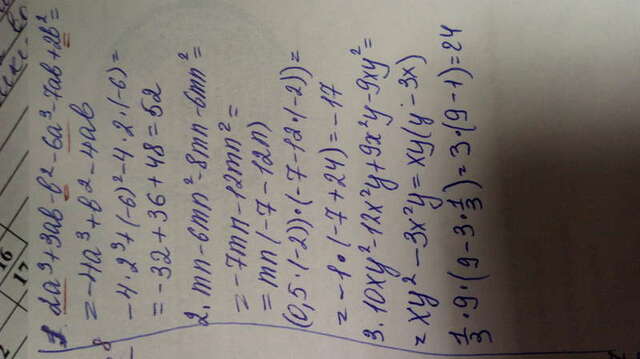 1. 2a³+3ab-b²-6a³-7ab+2b²=
=-4a³+b²-4ab
-4·2³+(-6)²-4·2·(-6)=
=-32+36+48=52
2. mn-6mn²-8mn-6mn²=
=-7mn-12mn²=
=mn(-7-12n)
(0,5·(-2))·(-7-12·(-2))=
=-1·(-7+24)=-17
3. 10xy²-12x²y+9x²y-9xy²=
=xy²-3x²y=xy(y-3x)
1/3·9·(9-3·1/3)=3·(9-1)=24
16
17
8